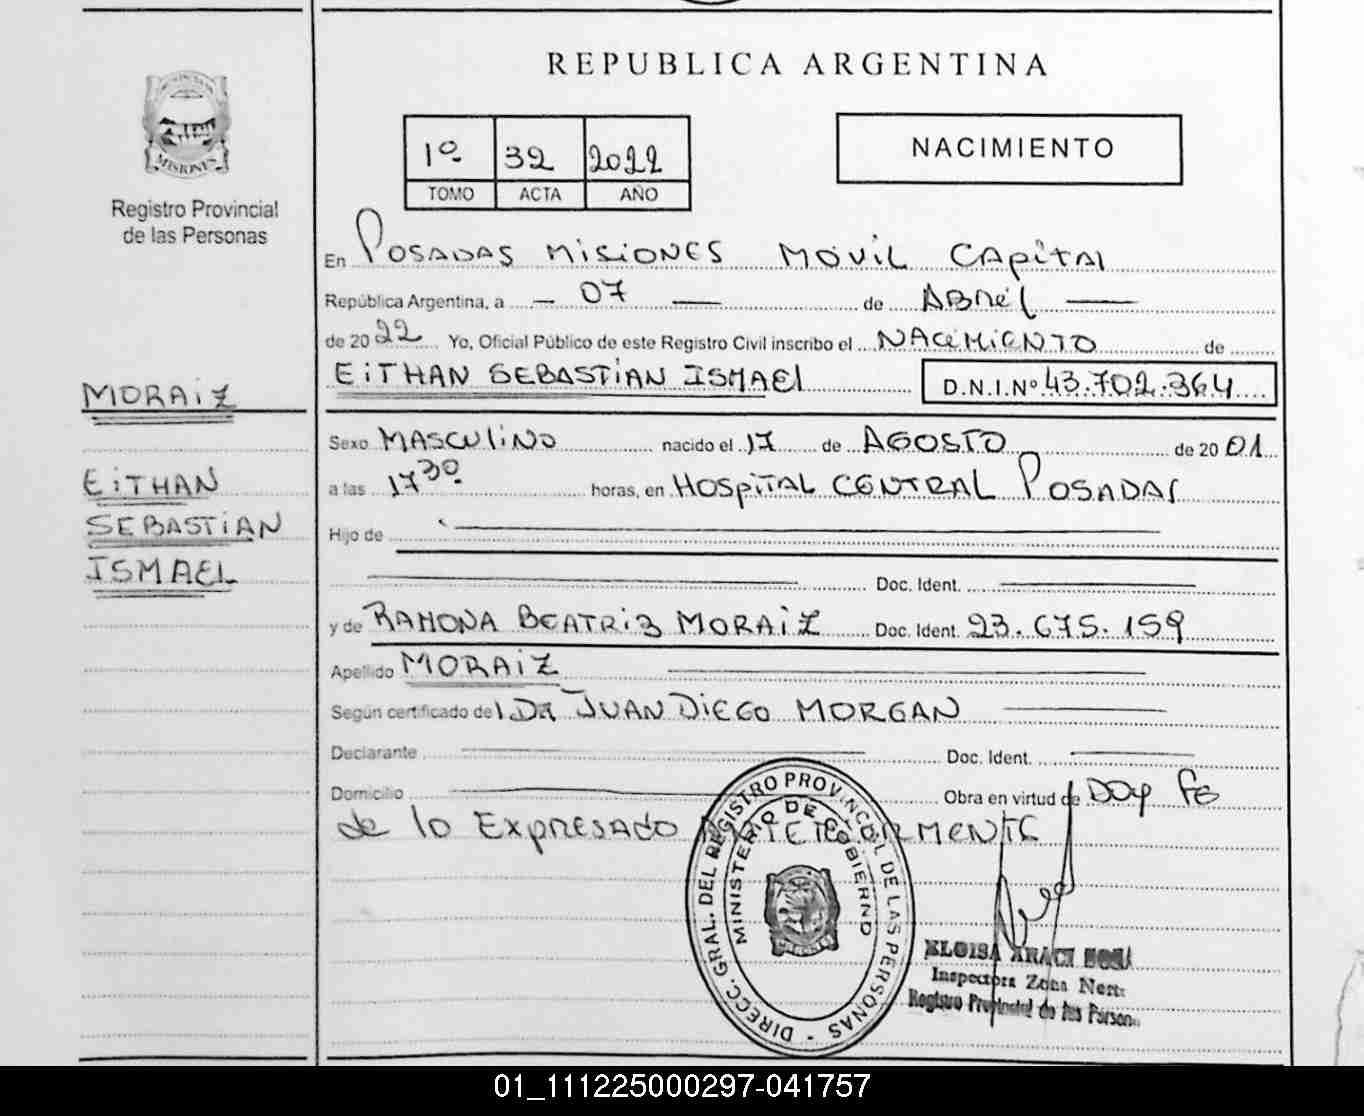 REPUBLICA ARGENTINA
MISIONES
Registro Provincial
de las Personas
1º 32 2022
TOMO ACTA AÑO
NACIMIENTO
En POSADAS MISIONES MOVIL CAPITAL
República Argentina, a 07 de ABRIL
de 2022 Yo, Oficial Público de este Registro Civil inscribo el NACIMIENTO de
EITHAN SEBASTIAN ISMAEL D.N.I.Nº 43.702.364
MORAIZ
EITHAN
SEBASTIAN
ISMAEL
Sexo MASCULINO nacido el 17 de AGOSTO de 2001
a las 17 30 horas, en HOSPITAL CENTRAL POSADAS
Hijo de
Doc. Ident.
y de RAMONA BEATRIZ MORAIZ Doc. Ident. 23.675.159
Apellido MORAIZ
Según certificado del DR JUAN DIEGO MORGAN
Declarante Doc. Ident.
Domicilio Obra en virtud de DOY FE
de lo EXPRESADO ANTERIORMENTE
DIRECC. GRAL. DEL REGISTRO PROVINCIAL DE LAS PERSONAS -
MINISTERIO DE GOBIERNO
ELOISA ARACI
Inspectora Zona
Registro Provincial de las
01_111225000297-041757